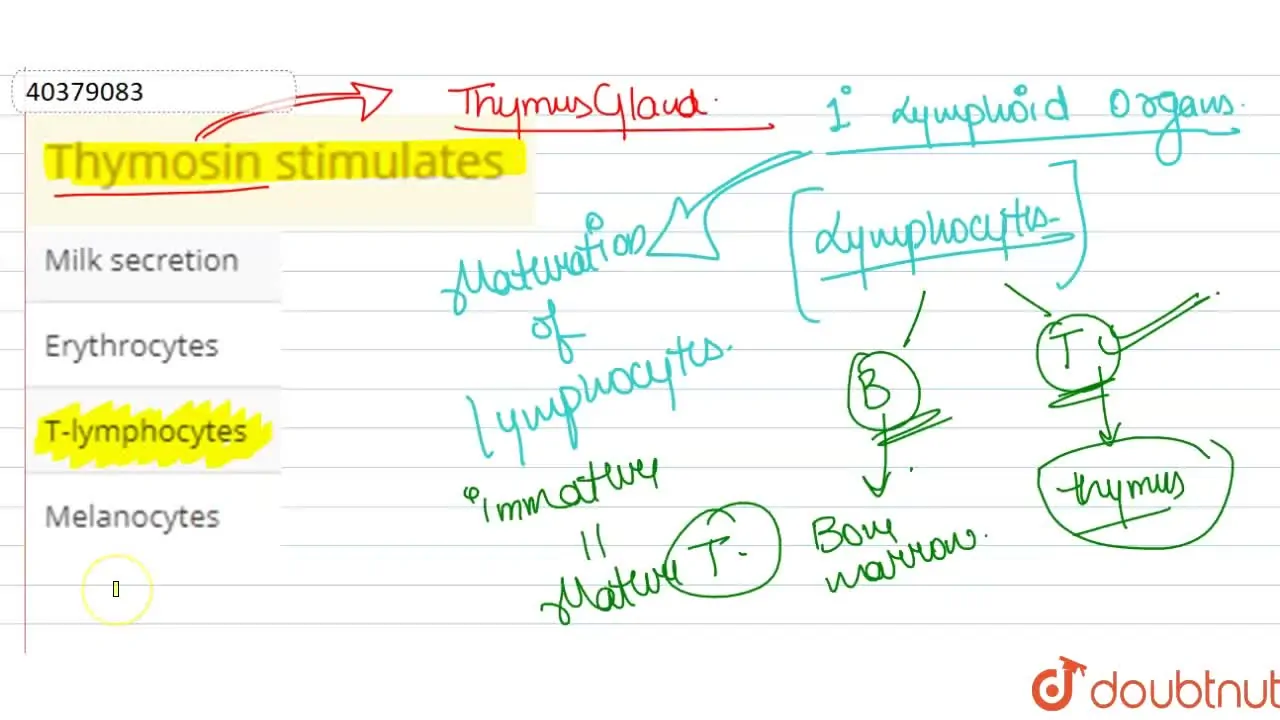 40379083
Thymosin stimulates
Milk secretion
Erythrocytes
T-lymphocytes
Melanocytes
Thymus Gland.
1° Lymphoid Organs.
[Lymphocytes]
Maturation
of
lymphocytes.
"immature
Mature T.
B
T
Bone
marrow.
thymus
doubtnut